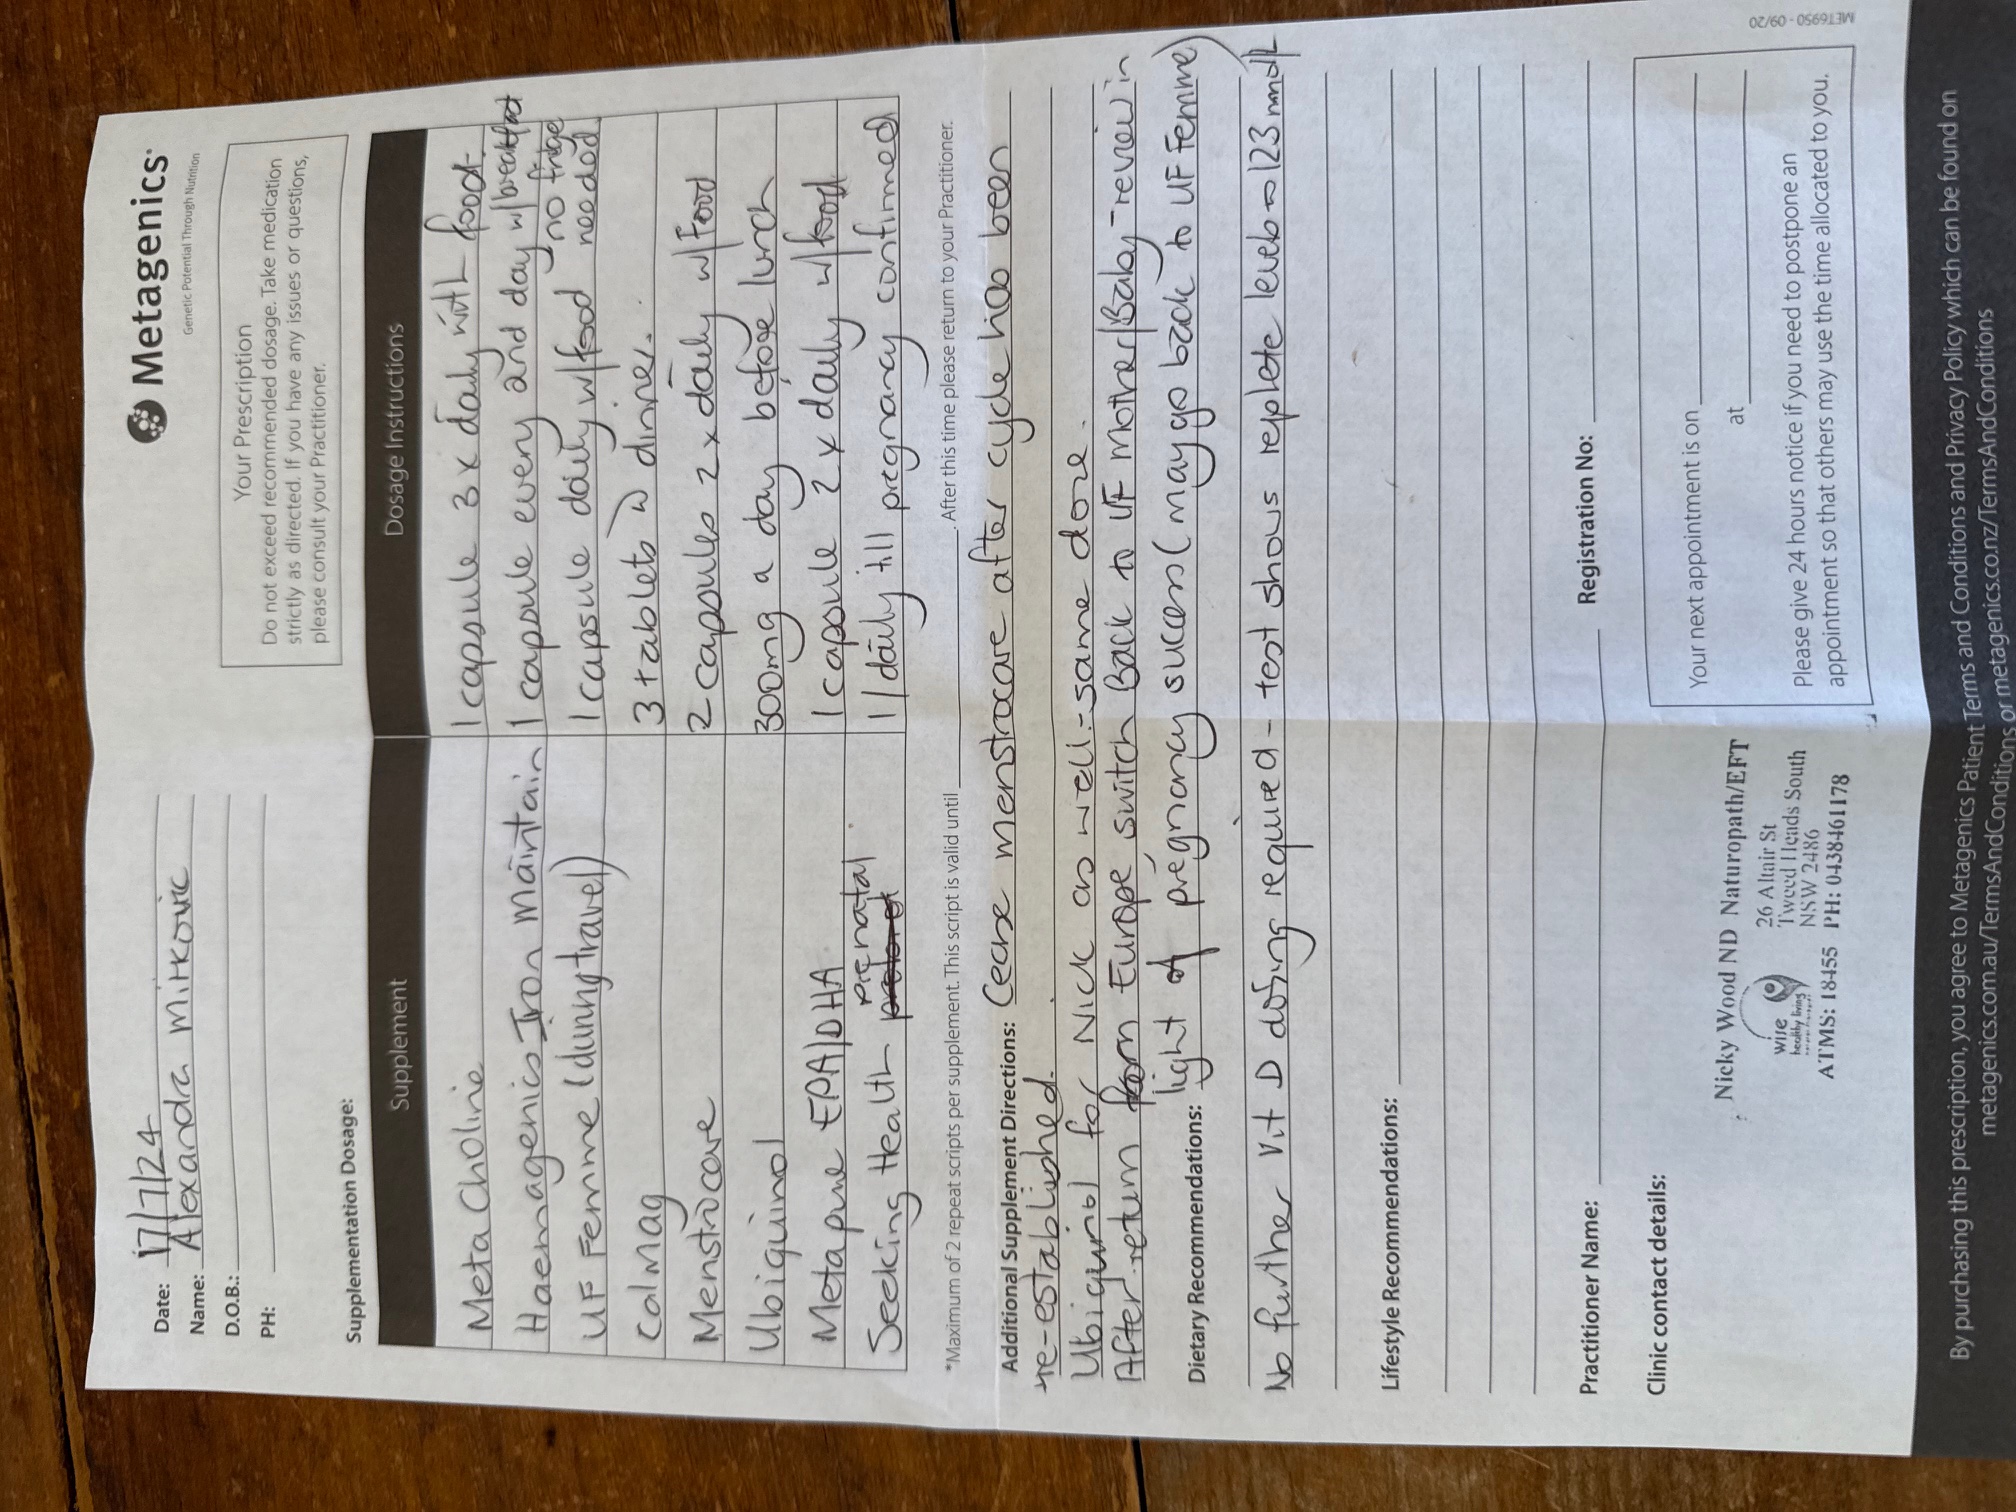 Metagenics
Genetic Potential Through Nutrition
Date: 17/7/24
Name: Alexandra Mirkovic
D.O.B.:
PH:
Your Prescription
Do not exceed recommended dosage. Take medication
strictly as directed. If you have any issues or questions,
please consult your Practitioner.
Supplementation Dosage:
Supplement Dosage Instructions
Meta Choline 1 capsule 3 x daily with food.
Haemagenics Iron Maintain 1 capsule every 2nd day w/breakfast
UF Femme (during travel) 1 capsule daily w/food no fridge needed
Calmag 3 tablets w dinner.
Menstrocare 2 capsules 2 x daily w/Food
Ubiquinol 300mg a day before lunch
Metapure EPA/DHA 1 capsule 2 x daily w/food
Seeking Health prenatal. 1 / daily till pregnancy confirmed
*Maximum of 2 repeat scripts per supplement. This script is valid until . After this time please return to your Practitioner.
Additional Supplement Directions: Cease menstrocare after cycle has been
re-established.
Ubiquinol for Nick as well - same dose.
After return from Europe switch Back to UF Mother/Baby - review in
Dietary Recommendations: light of pregnancy success (may go back to UF Femme)
No further Vit D dosing required - test shows replete levels 123 nmol/L
Lifestyle Recommendations:
Practitioner Name: Registration No:
Clinic contact details:
Nicky Wood ND Naturopath/EFT
26 Altair St
Tweed Heads South
NSW 2486
wise
healthy living
ATMS: 18455 PH: 0438461178
Your next appointment is on
at
Please give 24 hours notice if you need to postpone an
appointment so that others may use the time allocated to you.
MET6950 - 09/20
By purchasing this prescription, you agree to Metagenics Patient Terms and Conditions and Privacy Policy which can be found on
metagenics.com.au/TermsAndConditions or metagenics.co.nz/TermsAndConditions